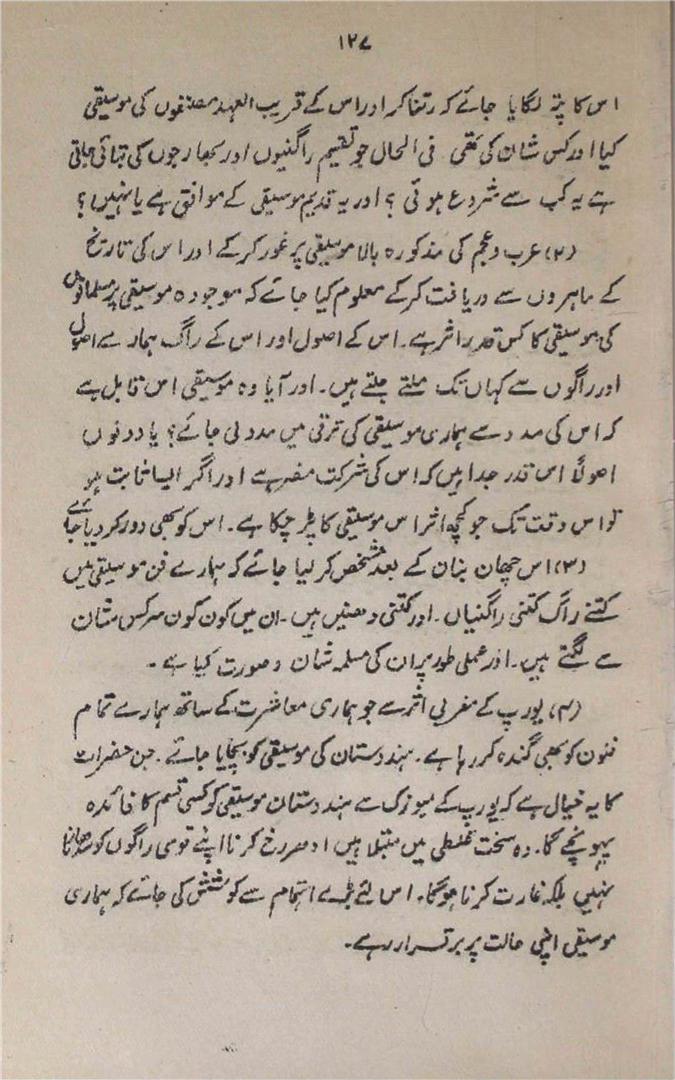 ۱۲۷
اس کا پتہ لگایا جائے کہ رتناکر اور اس کے قریب العہد مصنفوں کی موسیقی
کیا اور کس شان کی تھی فی الحال جو تقسیم راگنیوں اور بھارجوں کی بتائی جاتی
ہے یہ کب سے شروع ہوئی ؟ اور یہ قدیم موسیقی کے موافق ہے یا نہیں؟
(۲) عرب و عجم کی مذکورہ بالا موسیقی پر غور کر کے اور اس کی تاریخ
کے ماہروں سے دریافت کر کے معلوم کیا جائے کہ موجودہ موسیقی پر مسلمانوں
کی موسیقی کا کس قدر اثر ہے۔ اس کے اصول اور اس کے راگ ہمارے اصول
اور راگوں سے کہاں تک ملتے جلتے ہیں۔ اور آیا وہ موسیقی اس قابل ہے
کہ اس کی مدد سے ہماری موسیقی کی ترقی میں مدد لی جائے؟ یا دونوں
اصولاً اس قدر جدا ہیں کہ اس کی شرکت مضر ہے اور اگر ایسا ثابت ہو
تو اس وقت تک جو کچھ اثر اس موسیقی کا پڑ چکا ہے۔ اس کو بھی دور کر دیا جائے
(۳) اس چھان بنان کے بعد مشخص کر لیا جائے کہ ہمارے فن موسیقی میں
کتنے راگ کتنی راگنیاں۔ اور کتنی دھنیں ہیں۔ ان میں کون کون سر کس شان
سے لگتے ہیں۔ اور عملی طور پر ان کی مسلمہ شان و صورت کیا ہے۔
(۴) یورپ کے مغربی اثر سے جو ہماری معاشرت کے ساتھ ہمارے تمام
فنون کو بھی گندہ کر رہا ہے۔ ہندوستان کی موسیقی کو بچایا جائے۔ جن حضرات
کا یہ خیال ہے کہ یورپ کے میوزک سے ہندوستان موسیقی کو کسی قسم کا فائدہ
پہونچے گا۔ وہ سخت غلطی میں مبتلا ہیں ادھر رخ کرنا اپنے قومی راگوں کو سدھارنا
نہیں بلکہ غارت کرنا ہوگا۔ اس لئے بڑے اہتمام سے کوشش کی جائے کہ ہماری
موسیقی اپنی حالت پر برقرار رہے۔